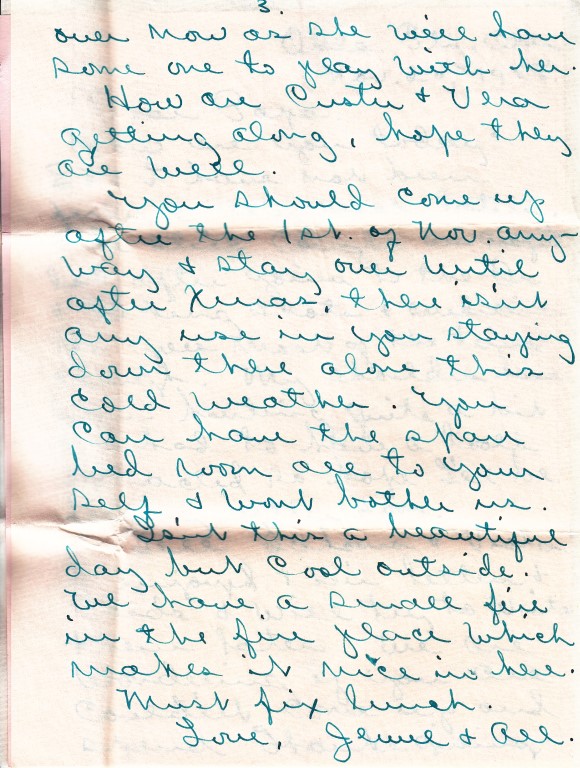 3.
over now as she will have
some one to play with her.
How are Custer & Vera
getting along, hope they
are well.
You should come up
after the 1st. of Nov. any-
way & stay over until
after Xmas, there isn't
any use in you staying
down there alone this
cold weather. You
can have the spare
bed room all to your
self & wont bother us.
Isn't this a beautiful
day but cool outside.
We have a small fire
in the fire place which
makes it nice in here.
Must fix lunch.
Love, & All.